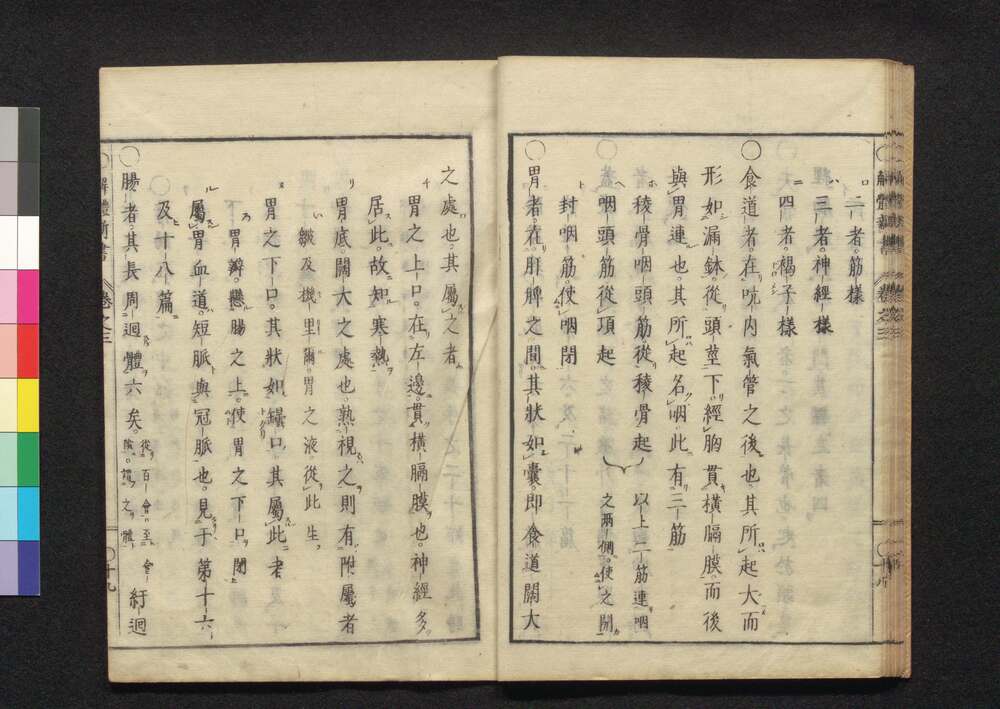 二者筋樣
三者神經樣
四者褐子樣
○食道者在吭内氣管之後也其所起大而
形如漏鉢從頭莖下經胸貫橫膈膜而後
與胃連也其所起名咽此有三筋
稜骨咽頭筋從稜骨起
以上二筋連咽
之兩側使之開
咽頭筋從項起
封咽筋使咽閉
○胃者在肝脾之間其狀如囊即食道闊大
之處也其屬之者
胃之上口在左邊貫橫膈膜也神經多
居此故知寒熱
胃底闊大之處也熟視之則有附屬者
皺及機里爾胃之液從此生
胃之下口其狀如罎口其屬此者
胃瓣懸腸之上使胃之下口閉
屬胃血道短脈與冠脈也見于第十六
及十八篇
○腸者其長周迴體六矣
從百會至會
陰謂之體
紆迴
解體新書 卷之三
十九